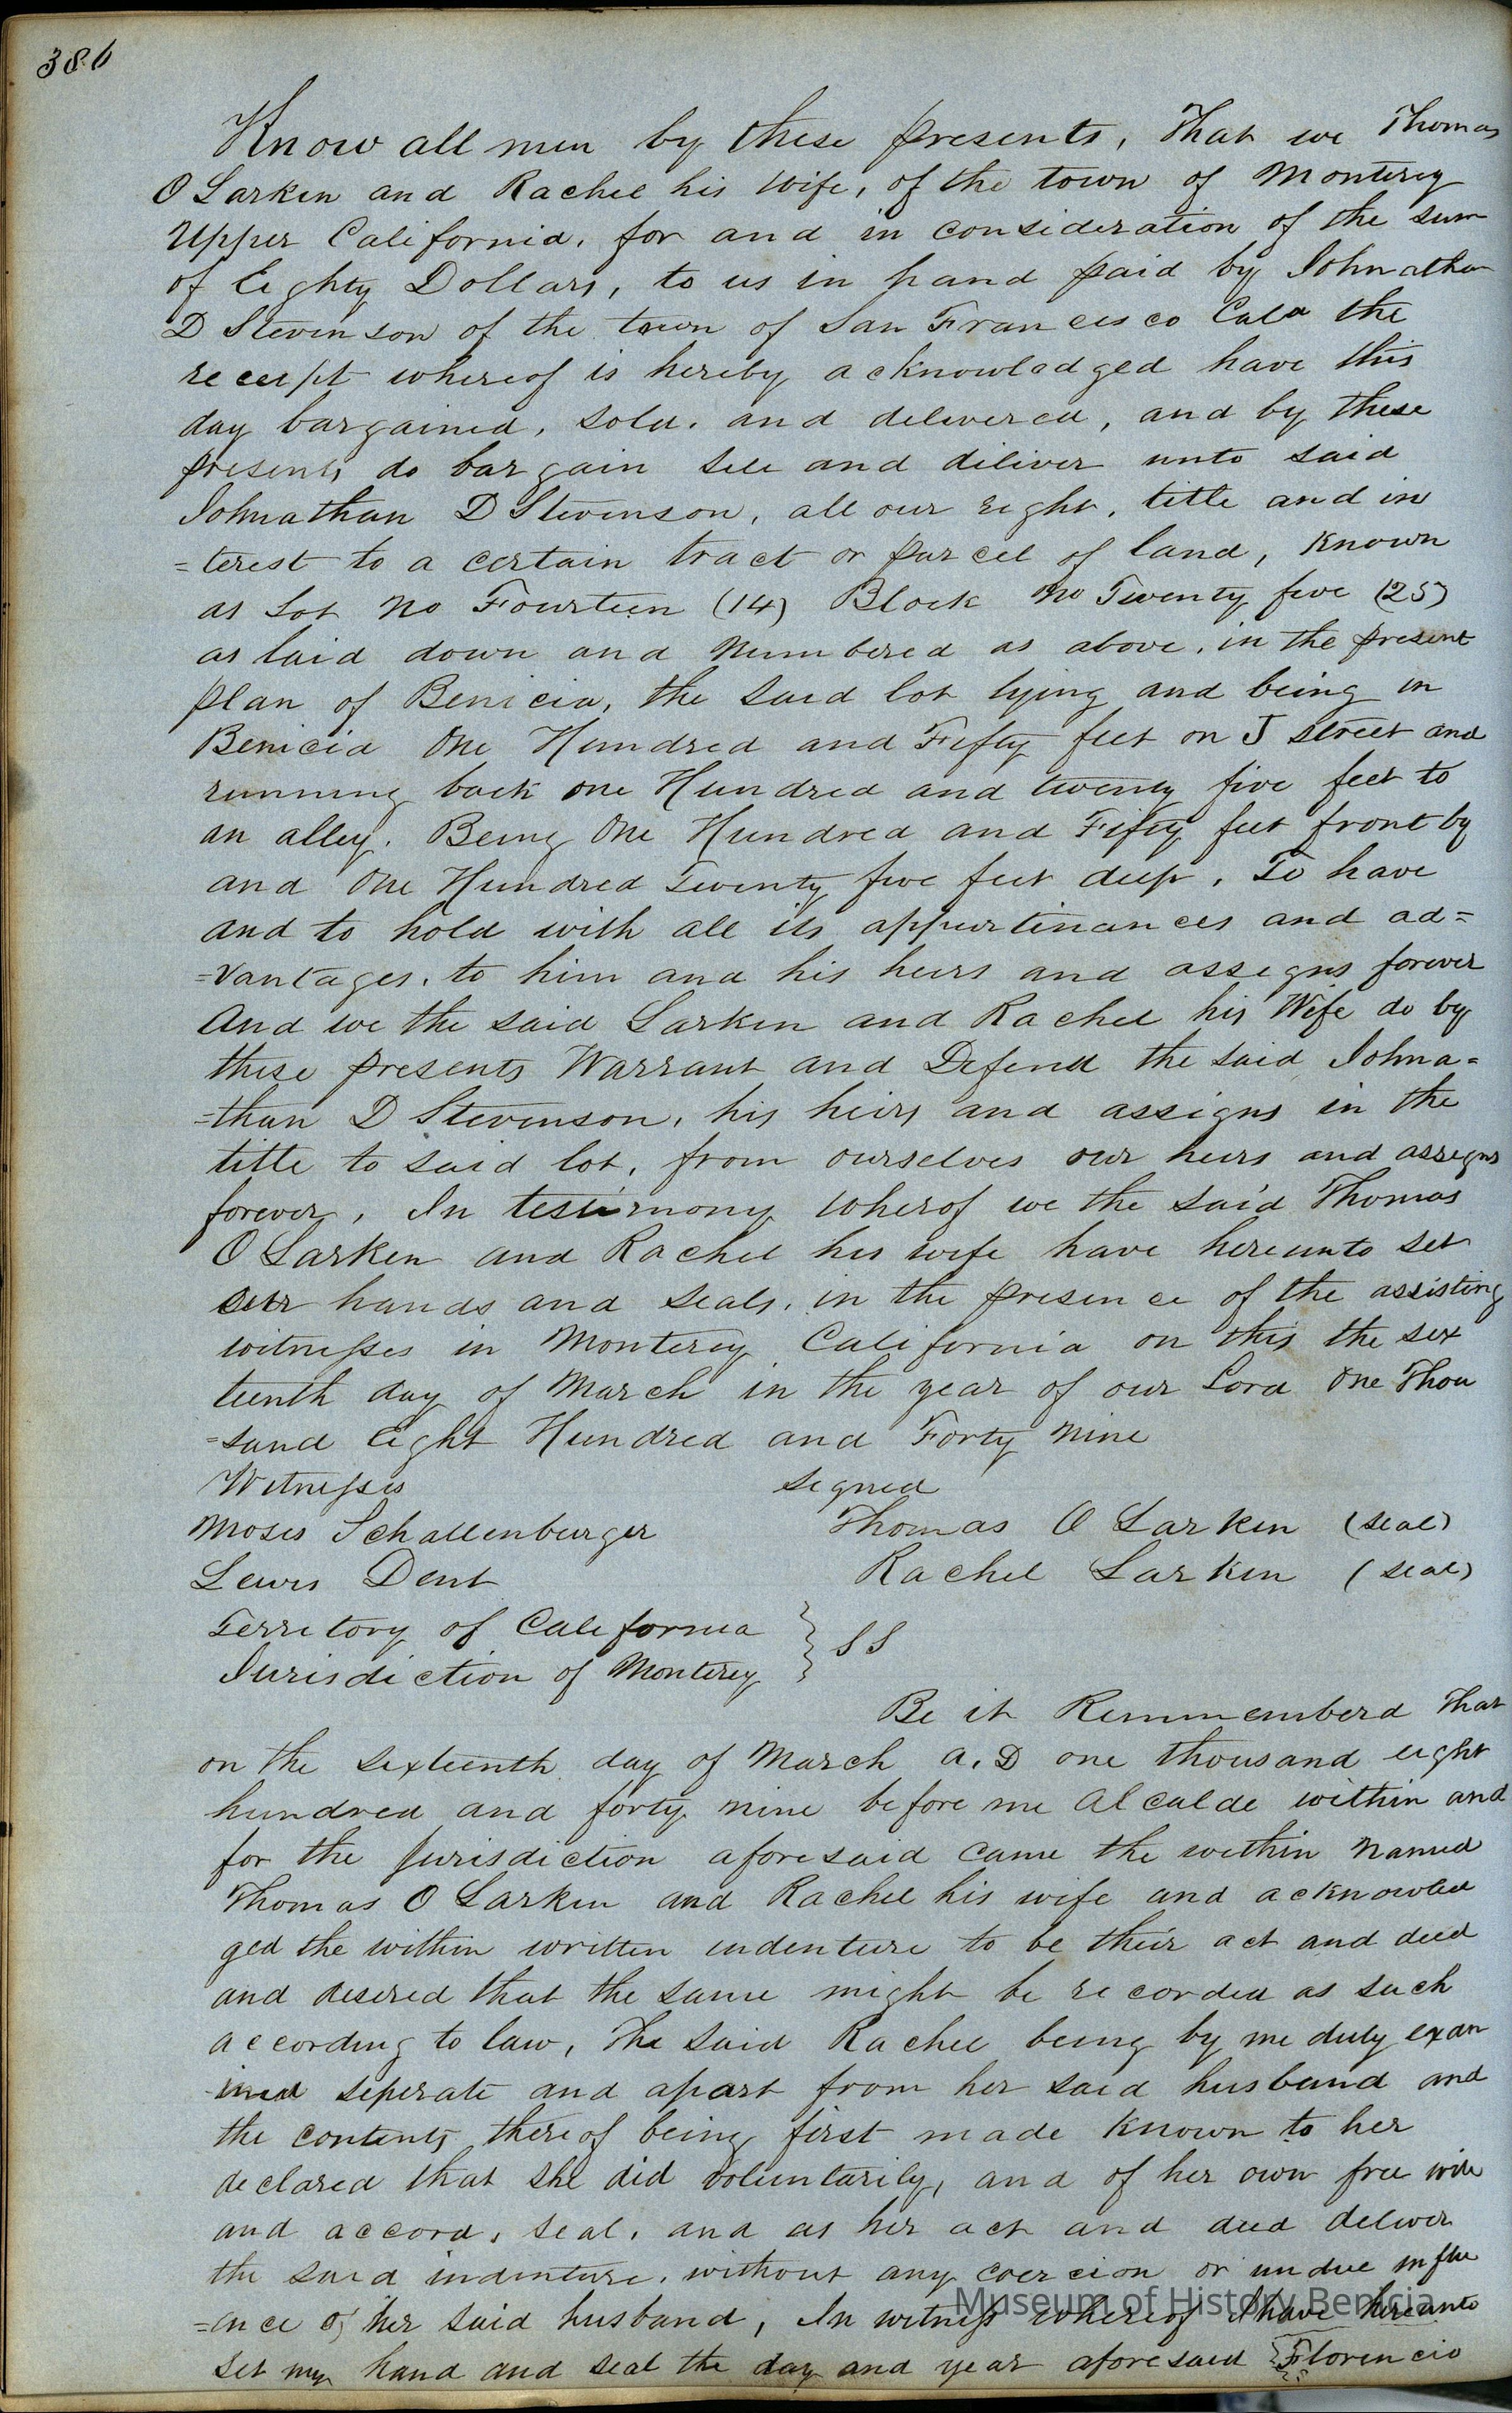 386
Know all men by these presents, That we Thomas
O Larken and Rachel his Wife, of the town of Monterey
Upper California, for and in consideration of the sum
of Eighty Dollars, to us in hand paid by Johnathan
D Stevenson of the town of San Francisco Cala the
receipt whereof is hereby acknowledged have this
day bargained, sold, and delivered, and by these
presents do bargain sell and diliver unto said
Johnathan D Stevenson, all our right, title and in
=terest to a certain tract or parcel of land, known
as Lot No Fourteen (14) Block No Twenty five (25)
as laid down and Numbered as above, in the present
plan of Benicia, the said lot lying and being in
Benicia One Hundred and Fifty feet on J street and
running back one Hundred and twenty five feet to
an alley. Being One Hundred and Fifty feet front by
and One Hundred Twenty five feet deep, To have
and to hold with all its appurtinances and ad=
=vantages, to him and his heirs and assigns forever
And we the said Larken and Rachel his Wife do by
these presents Warrant and Defend the said Johna=
=than D Stevenson, his heirs and assigns in the
title to said lot, from ourselves our heirs and assigns
forever, In testimony Wherof we the said Thomas
O Larken and Rachel his wife have hereunto set
our hands and seals, in the presence of the assisting
witnesses in Monterey California on this the six
teenth day of March in the year of our Lord One Thou
=sand Eight Hundred and Forty Nine
Witnesses signed
Moses Schallenburger Thomas O Larken (seal)
Lewis Dent Rachel Larken (seal)
Territory of California } SS
Jurisdiction of Monterey
Be it Remmemberd That
on the sixteenth day of March A.D one thousand eight
hundred and forty nine before me Alcalde within and
for the Jurisdiction aforesaid came the within Named
Thomas O Larken and Rachel his wife and acknowled
ged the within written indenture to be their act and deed
and desired that the same might be recorded as such
according to law, The said Rachel being by me duly exam
-ined seperate and apart from her said husband and
the contents thereof being first made known to her
declared that she did voluntarily, and of her own free will
and accord, seal, and as her act and deed deliver
the said indenture, without any coercion or undue influ
=ence of her said husband, In witness whereof I have hereunto
Set my hand and seal the day and year aforesaid Florencio
Museum of History Benicia